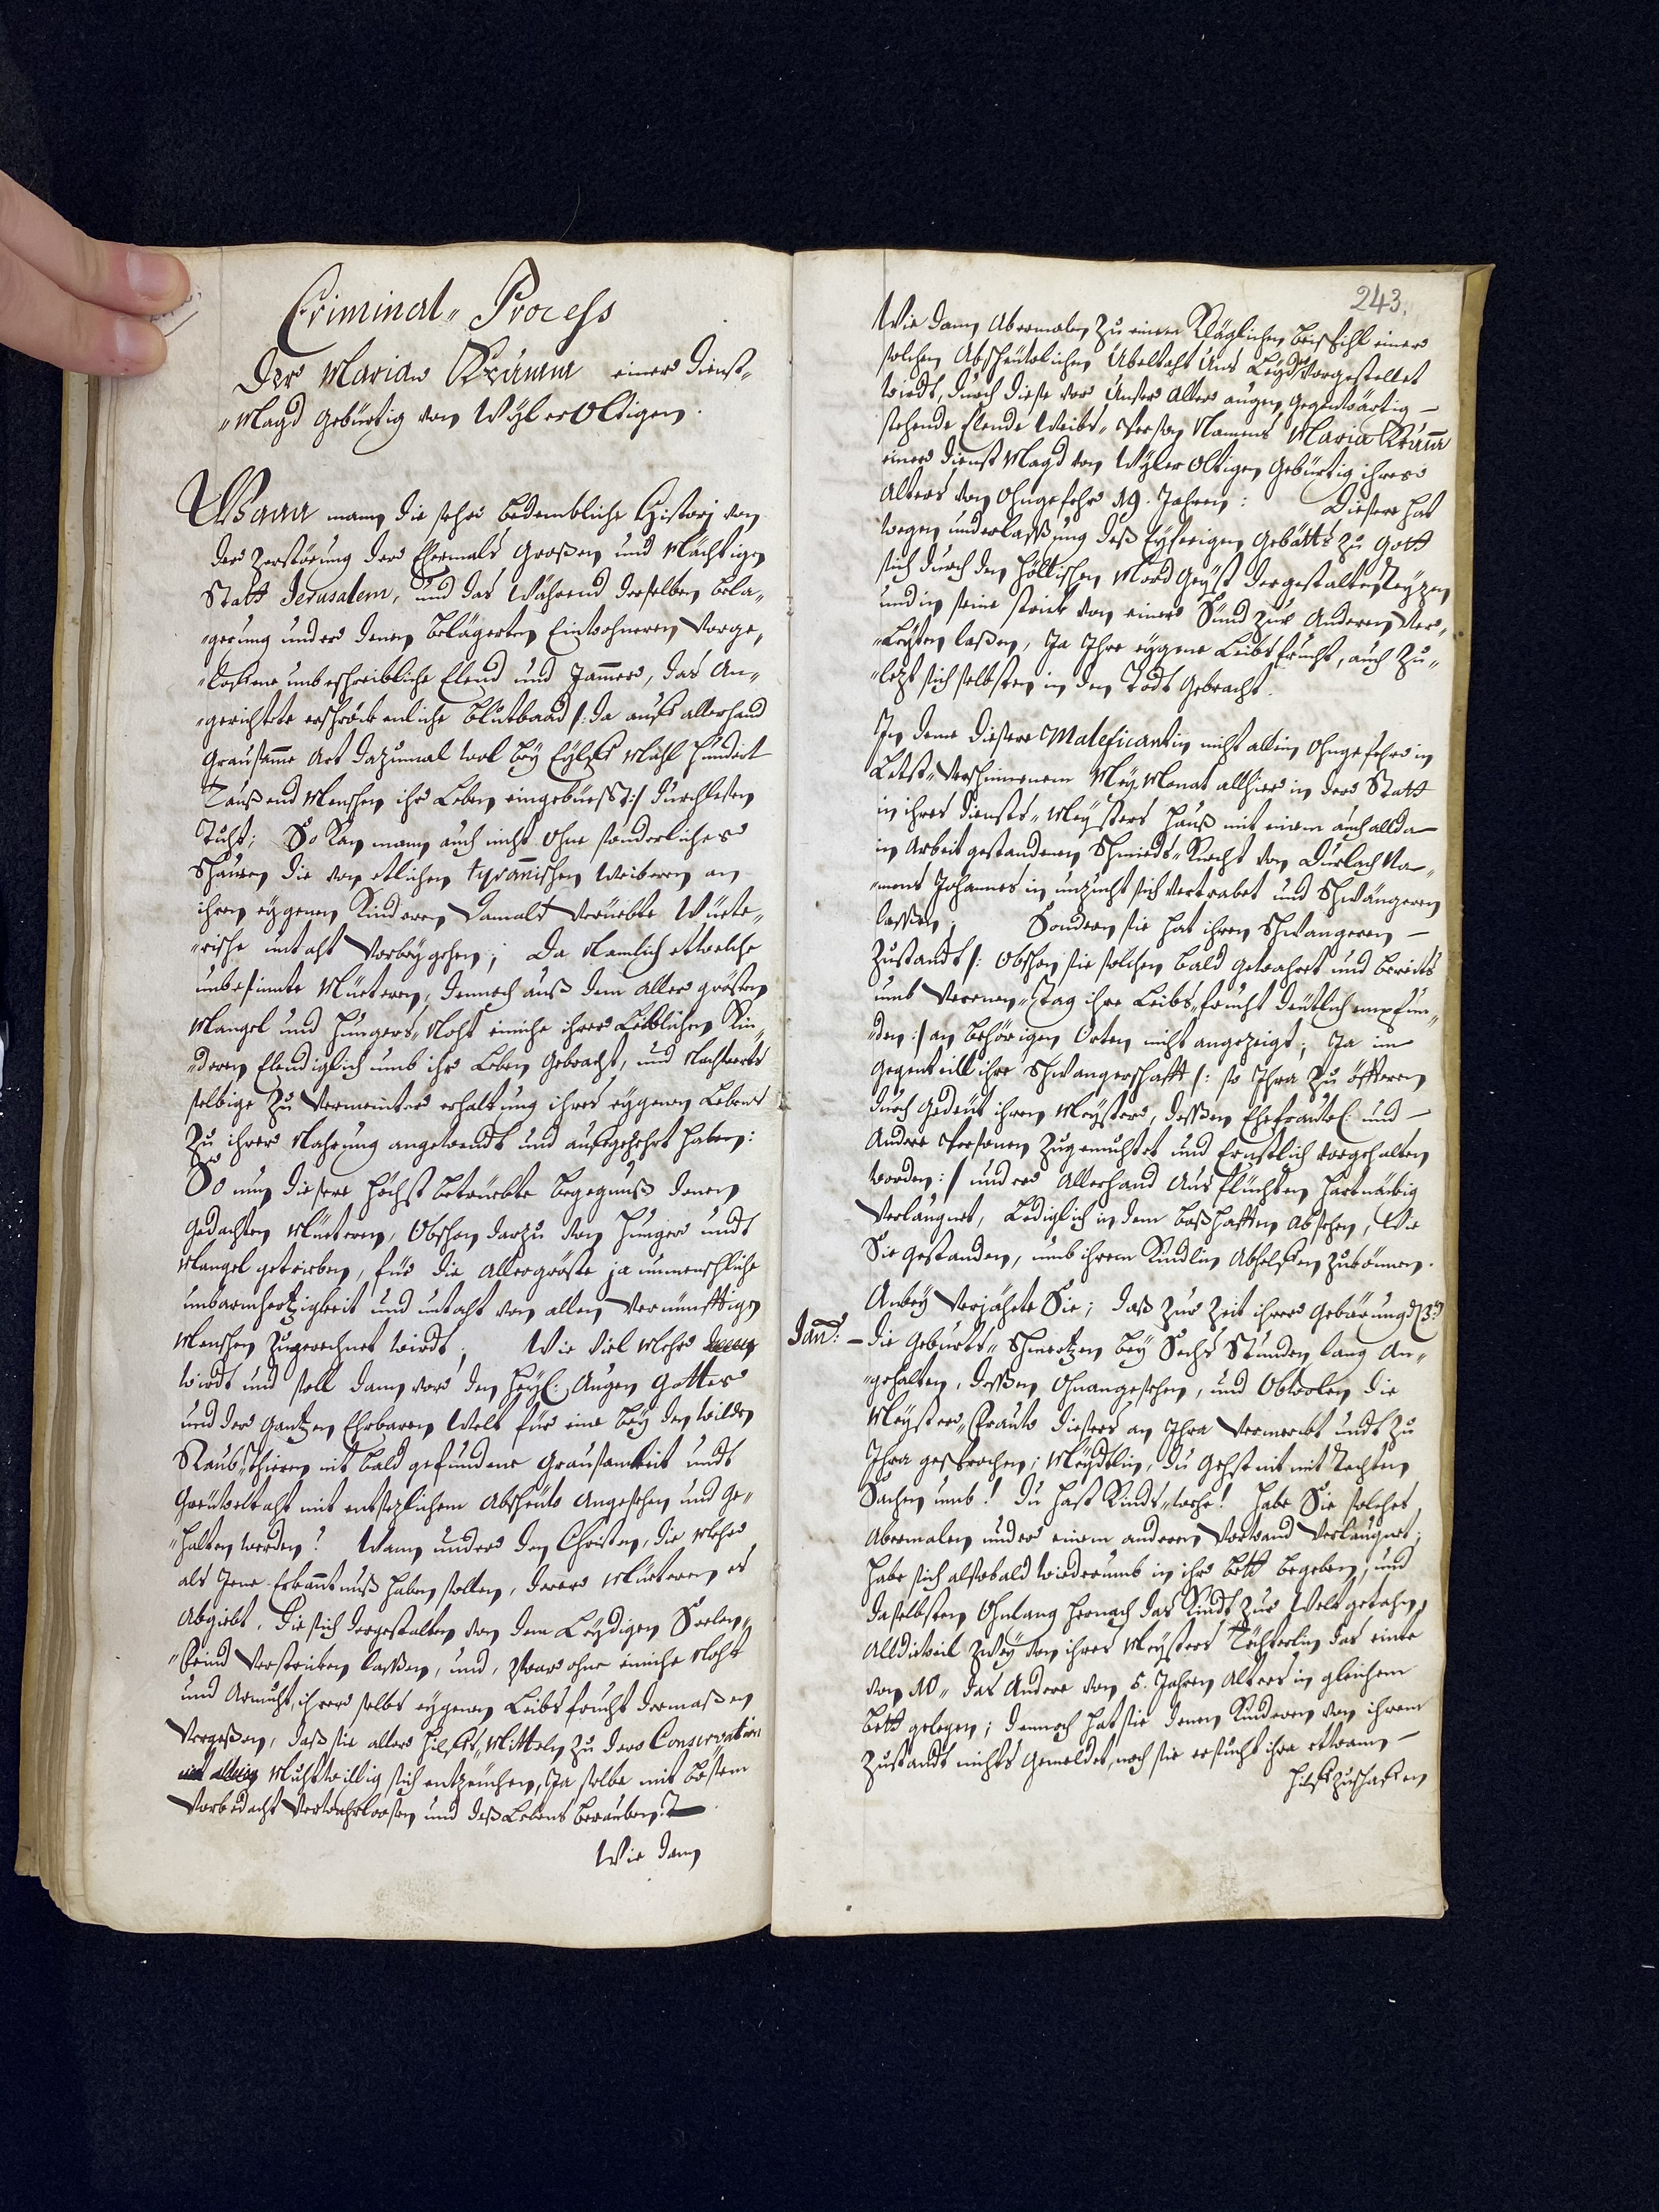 Criminal-Process
Der Marian Krumm einer dienst-
-Magd gebürtig von Wyleroltigen.
Wann mann die sehr bedenckliche Histori von
der Zerstörung der Ehemals Großen und Mächtigen
Statt Jerusalem, und das während derselben bela-
-gerung under denen belägerten Einwohneren vorge-
-loffene unbeschreibliche Elend und Jammer, das An-
-gerichtete erschröckenliche blutbaad /: da auff allerhand
grausamme Art dazumal wol bey Eylff Mahl hundert
Tausend Menschen ihr Leben eingebüesst :/ durchlesen
Tuht; So kan mann auch nicht ohne sonderliches
Schauren die von etlichen tyrannischen Weiberen an
ihren eygenen Kinderen damals verüebte Wüete-
-rische untaht vorbeygehen; da Namlich etwelche
unbesinnte Müeteren, dennoch auß dem aller grösten
Mangel und Hungers-Noht einiche ihrer Leiblichen Kin-
-deren Elendiglich umb ihr Leben gebracht, und Nachwerts
selbige zu vermeinter erhaltung ihres eygenen Lebens
zu ihrer Nahrung angewendt und aufgezehrt haben:
So nun diesere höchst betrüebte begegnuß denen
gedachten Müeteren, Obschon darzu von Hunger undt
Mangel getrieben, für die Allergröste ja unmenschliche
unbarmhertzigkeit und untaht von allen vernünfftigen
Menschen zugerechnet wirdt; Wie viel Mehr
wirdt und soll dann vor den Heyl: Augen Gottes
und der gantzen Ehrbaren Welt für eine bey den wilden
Raub-thieren nit bald gefundene Grausamkeit undt
Greüweltaht mit entsezlichem Abscheüw Angesehen und ge-
-halten werden! Wann under den Christen, die Mehr
als Jene Erkanntnuß haben solten, derer Müeteren es
Abgiebt, die sich dergestalten von dem Leydigen Seelen-
-feind verstricken laßen, und, zwar ohne einiche Noht
und Armuht, ihrer selbs eygenen Leibsfrucht dermaßen
vergeßen, daß sie aller Hilffs-Mittlen zu dero Conservation
Muhtwillig sich entzeüchen, Ja solbe mit bösem
Vorbedacht verwahrloosen und deß Lebens berauben?
Wie dann
243.
Wie dann Abermalen zu einem Kläglichen beyspihl einer
solchen Abscheüwlichen Übeltaht Uns Leyder vorgestellet
wirdt, durch diese vor Unser Aller augen gegenwärtig-
stehende Elende Weibs-Person Namens Maria Krumm
einer dienst Magd von Wyleroltigen gebürtig ihres
Alters von ohngefehr 19. Jahren: Diesere hat
wegen underlaßung deß Eyferigen Gebätts zu Gott
sich durch den höllischen Mord Geyst dergestalten Reyzen
und in seine strick von einer Sünd zur Anderen ver-
-Leyten laßen, Ja Ihre eygene Leibsfrucht, auch zu-
-letzt sich selbsten in den Todt gebracht.
In deme diesere Maleficantin nicht allein ohngefehr in
Letst-verschinnenem Mey Monat allhier in der Statt
in ihres diensts-Meysters Hauß mit einem auch allda
in Arbeit gestandenen Schmieds-Knecht von Durlach Na-
-mens Johannes in unzucht sich vertrabet und Schwängeren
laßen; Sonderen sie hat ihren Schwangeren
Zustandt /: Obschon sie solchen bald gewahret und bereits
umb Verenen-tag ihre Leibs-frucht deütlich empfun-
-den :/ an behörigen Orten nicht angezeigt; Ja im
gegentheill ihre Schwangerschafft /: so Ihra zu öffteren
durch gedeüt ihren Meyster, deßen Ehefrauwl: und
Andere Personen zugemuhtet und Ernstlich vorgehalten
worden :/ under Allerhand Ausflüchten hartnäckig
verläugnet, Lediglich in dem boßhafften Absehen, Wie
Sie gestanden, umb ihrem Kindlin Abhelffen zukönnen.
Anbey verjähete Sie; daß zur Zeit ihrer Gebärung d. 3ten
Jan: - die Geburts-Schmertzen bey Sechs Stunden lang An-
-gehalten, deßen ohnangesehen, und Obwolen die
Meysters-Frauw dieseres an Ihra vermerckt undt zu
Ihra gesprochen; Meydtlin, du gehst nit mit Rechten
Sachen umb! du hast Kinds-wehe! habe Sie solches
Abermalen under einem anderen Vorwand verläugnet;
habe sich alsobald wiederumb in ihr bett begeben, und
daselbsten ohnlang hernach das Kindt zur Welt getahn,
Alldieweil zwey von ihres Meysters Töchterlin, das einte
von 10- das Andere von 5. Jahren Alters in gleichem
bett gelegen; dennoch hat sie denen Kinderen von ihrem
Zustandt nichts gemeldet, noch sie ersucht ihra etwann
Hilff zuschaffen